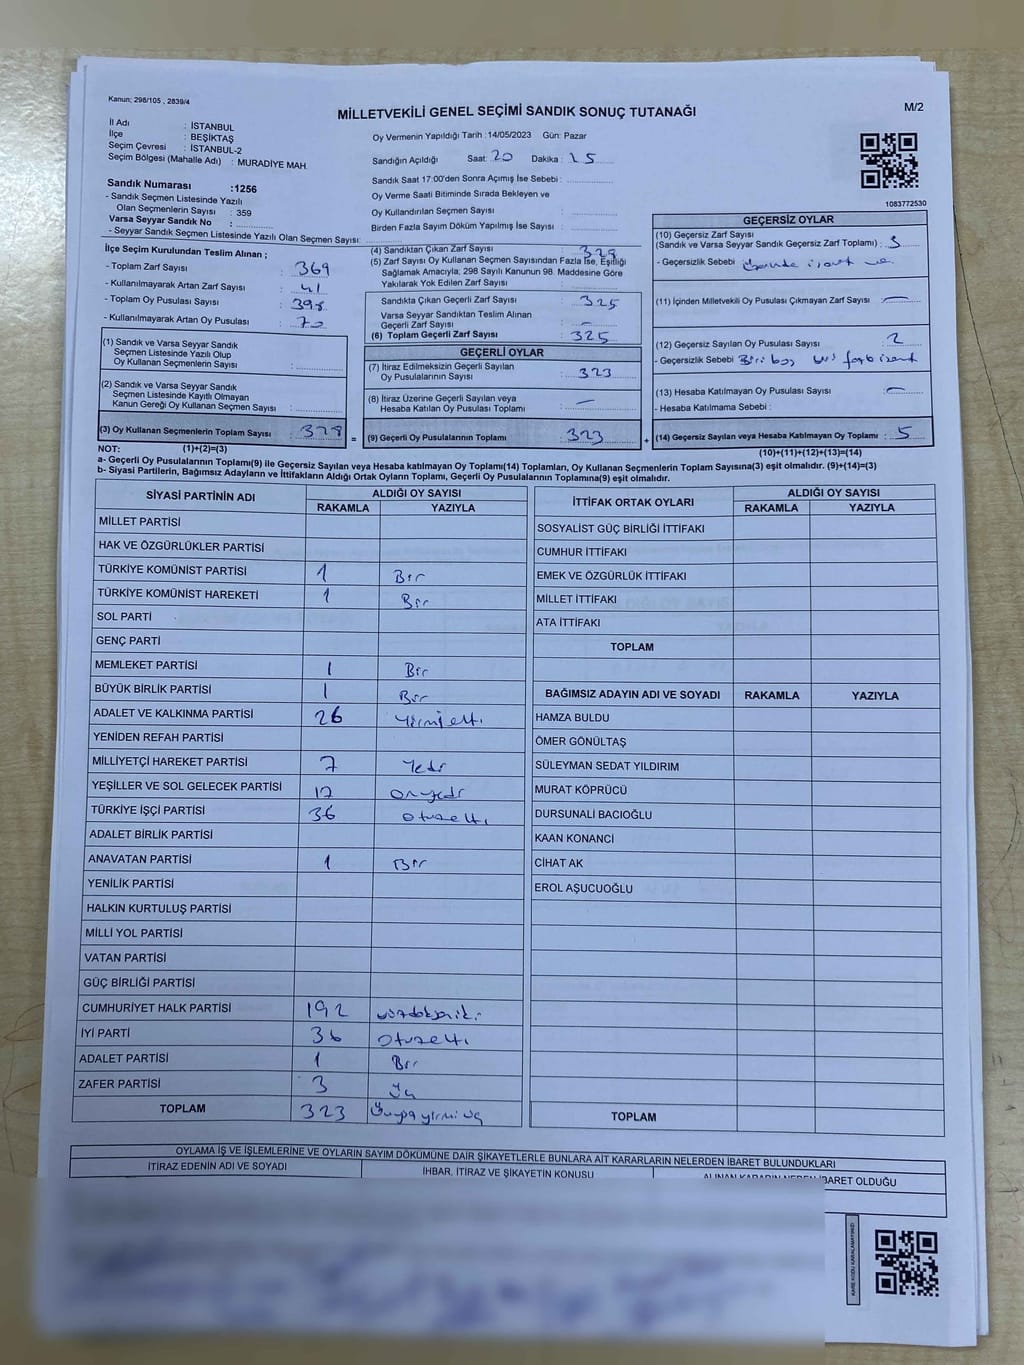 Kanun; 298/105 , 2839/4
MİLLETVEKİLİ GENEL SEÇİMİ SANDIK SONUÇ TUTANAĞI
M/2
İl Adı : İSTANBUL
İlçe : BEŞİKTAŞ
Seçim Çevresi : İSTANBUL-2
Seçim Bölgesi (Mahalle Adı) : MURADİYE MAH.
Sandık Numarası :1256
- Sandık Seçmen Listesinde Yazılı
Olan Seçmenlerin Sayısı : 359
Varsa Seyyar Sandık No :
- Seyyar Sandık Seçmen Listesinde Yazılı Olan Seçmen Sayısı:
Oy Vermenin Yapıldığı Tarih :14/05/2023 Gün: Pazar
Sandığın Açıldığı Saat: 20 Dakika : 15
Sandık Saat 17:00'den Sonra Açımış İse Sebebi :
Oy Verme Saati Bitiminde Sırada Bekleyen ve
Oy Kullandırılan Seçmen Sayısı :
Birden Fazla Sayım Döküm Yapılmış İse Sayısı :
1083772530
İlçe Seçim Kurulundan Teslim Alınan ;
- Toplam Zarf Sayısı : 369
- Kullanılmayarak Artan Zarf Sayısı : 41
- Toplam Oy Pusulası Sayısı : 398
- Kullanılmayarak Artan Oy Pusulası : 70
(1) Sandık ve Varsa Seyyar Sandık
Seçmen Listesinde Yazılı Olup
Oy Kullanan Seçmenlerin Sayısı :
(2) Sandık ve Varsa Seyyar Sandık
Seçmen Listesinde Kayıtlı Olmayan
Kanun Gereği Oy Kullanan Seçmen Sayısı :
(3) Oy Kullanan Seçmenlerin Toplam Sayısı : 328
(1)+(2)=(3)
(4) Sandıktan Çıkan Zarf Sayısı : 328
(5) Zarf Sayısı Oy Kullanan Seçmen Sayısından Fazla İse, Eşitliği
Sağlamak Amacıyla; 298 Sayılı Kanunun 98. Maddesine Göre
Yakılarak Yok Edilen Zarf Sayısı :
Sandıkta Çıkan Geçerli Zarf Sayısı : 325
Varsa Seyyar Sandıktan Teslim Alınan
Geçerli Zarf Sayısı : —
(6) Toplam Geçerli Zarf Sayısı : 325
GEÇERLİ OYLAR
(7) İtiraz Edilmeksizin Geçerli Sayılan
Oy Pusulalarının Sayısı : 323
(8) İtiraz Üzerine Geçerli Sayılan veya
Hesaba Katılan Oy Pusulası Toplamı : —
= (9) Geçerli Oy Pusulalarının Toplamı : 323
GEÇERSİZ OYLAR
(10) Geçersiz Zarf Sayısı
(Sandık ve Varsa Seyyar Sandık Geçersiz Zarf Toplamı) : 3
- Geçersizlik Sebebi : üzerinde işaret var
(11) İçinden Milletvekili Oy Pusulası Çıkmayan Zarf Sayısı : —
(12) Geçersiz Sayılan Oy Pusulası Sayısı : 2
- Geçersizlik Sebebi Biri boş
(13) Hesaba Katılmayan Oy Pusulası Sayısı : —
- Hesaba Katılmama Sebebi :
+ (14) Geçersiz Sayılan veya Hesaba Katılmayan Oy Toplamı : 5
(10)+(11)+(12)+(13)=(14)
NOT:
a- Geçerli Oy Pusulalarının Toplamı(9) ile Geçersiz Sayılan veya Hesaba katılmayan Oy Toplamı(14) Toplamları, Oy Kullanan Seçmenlerin Toplam Sayısına(3) eşit olmalıdır. (9)+(14)=(3)
b- Siyasi Partilerin, Bağımsız Adayların ve İttifakların Aldığı Ortak Oyların Toplamı, Geçerli Oy Pusulalarının Toplamına(9) eşit olmalıdır.
SİYASİ PARTİNİN ADI ALDIĞI OY SAYISI
RAKAMLA YAZIYLA
MİLLET PARTİSİ
HAK VE ÖZGÜRLÜKLER PARTİSİ
TÜRKİYE KOMÜNİST PARTİSİ 1 Bir
TÜRKİYE KOMÜNİST HAREKETİ 1 Bir
SOL PARTİ
GENÇ PARTİ
MEMLEKET PARTİSİ 1 Bir
BÜYÜK BİRLİK PARTİSİ 1 Bir
ADALET VE KALKINMA PARTİSİ 26 Yirmialtı
YENİDEN REFAH PARTİSİ
MİLLİYETÇİ HAREKET PARTİSİ 7 Yedi
YEŞİLLER VE SOL GELECEK PARTİSİ 17 onyedi
TÜRKİYE İŞÇİ PARTİSİ 36 otuzaltı
ADALET BİRLİK PARTİSİ
ANAVATAN PARTİSİ 1 Bir
YENİLİK PARTİSİ
HALKIN KURTULUŞ PARTİSİ
MİLLİ YOL PARTİSİ
VATAN PARTİSİ
GÜÇ BİRLİĞİ PARTİSİ
CUMHURİYET HALK PARTİSİ 192 yüzdoksaniki
İYİ PARTİ 36 otuzaltı
ADALET PARTİSİ 1 Bir
ZAFER PARTİSİ 3 Üç
TOPLAM 323 Üçyüzyirmiüç
İTTİFAK ORTAK OYLARI ALDIĞI OY SAYISI
RAKAMLA YAZIYLA
SOSYALİST GÜÇ BİRLİĞİ İTTİFAKI
CUMHUR İTTİFAKI
EMEK VE ÖZGÜRLÜK İTTİFAKI
MİLLET İTTİFAKI
ATA İTTİFAKI
TOPLAM
BAĞIMSIZ ADAYIN ADI VE SOYADI RAKAMLA YAZIYLA
HAMZA BULDU
ÖMER GÖNÜLTAŞ
SÜLEYMAN SEDAT YILDIRIM
MURAT KÖPRÜCÜ
DURSUNALİ BACIOĞLU
KAAN KONANCİ
CİHAT AK
EROL AŞUCUOĞLU
TOPLAM
OYLAMA İŞ VE İŞLEMLERİNE VE OYLARIN SAYIM DÖKÜMÜNE DAİR ŞİKAYETLERLE BUNLARA AİT KARARLARIN NELERDEN İBARET BULUNDUKLARI
İTİRAZ EDENİN ADI VE SOYADI İHBAR, İTİRAZ VE ŞİKAYETİN KONUSU ALINAN KARARIN NEDEN İBARET OLDUĞU
KARE KODU KARALAMAYINIZ!